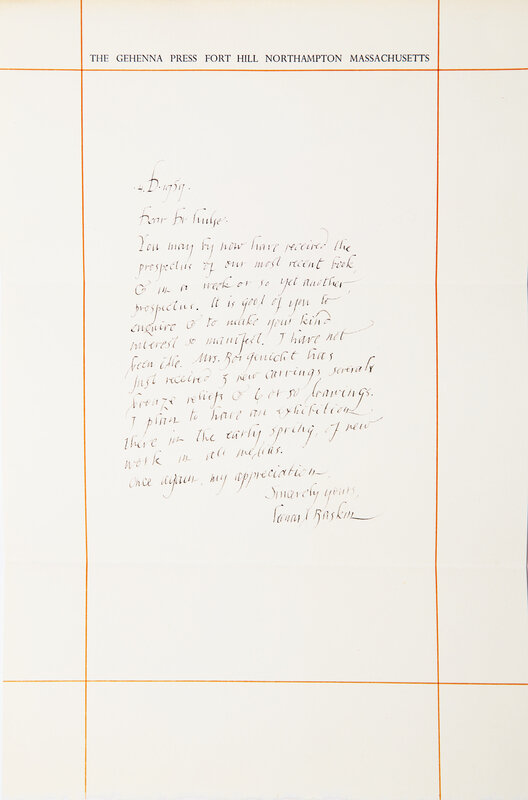 THE GEHENNA PRESS FORT HILL NORTHAMPTON MASSACHUSETTS
1959.
Dear Dr
You may by now have received the
prospectus of our most recent book,
& in a week or so yet another
prospectus. It is good of you to
enquire & to make your kind
interest so manifest. I have not
been idle. Mrs. Borgenicht has
just received 3 new carvings several
bronze reliefs & 6 or so drawings.
I plan to have an exhibition
there in the early spring, of new
work in all medias.
Once again, my appreciation,
Sincerely yours,
Leonard Baskin